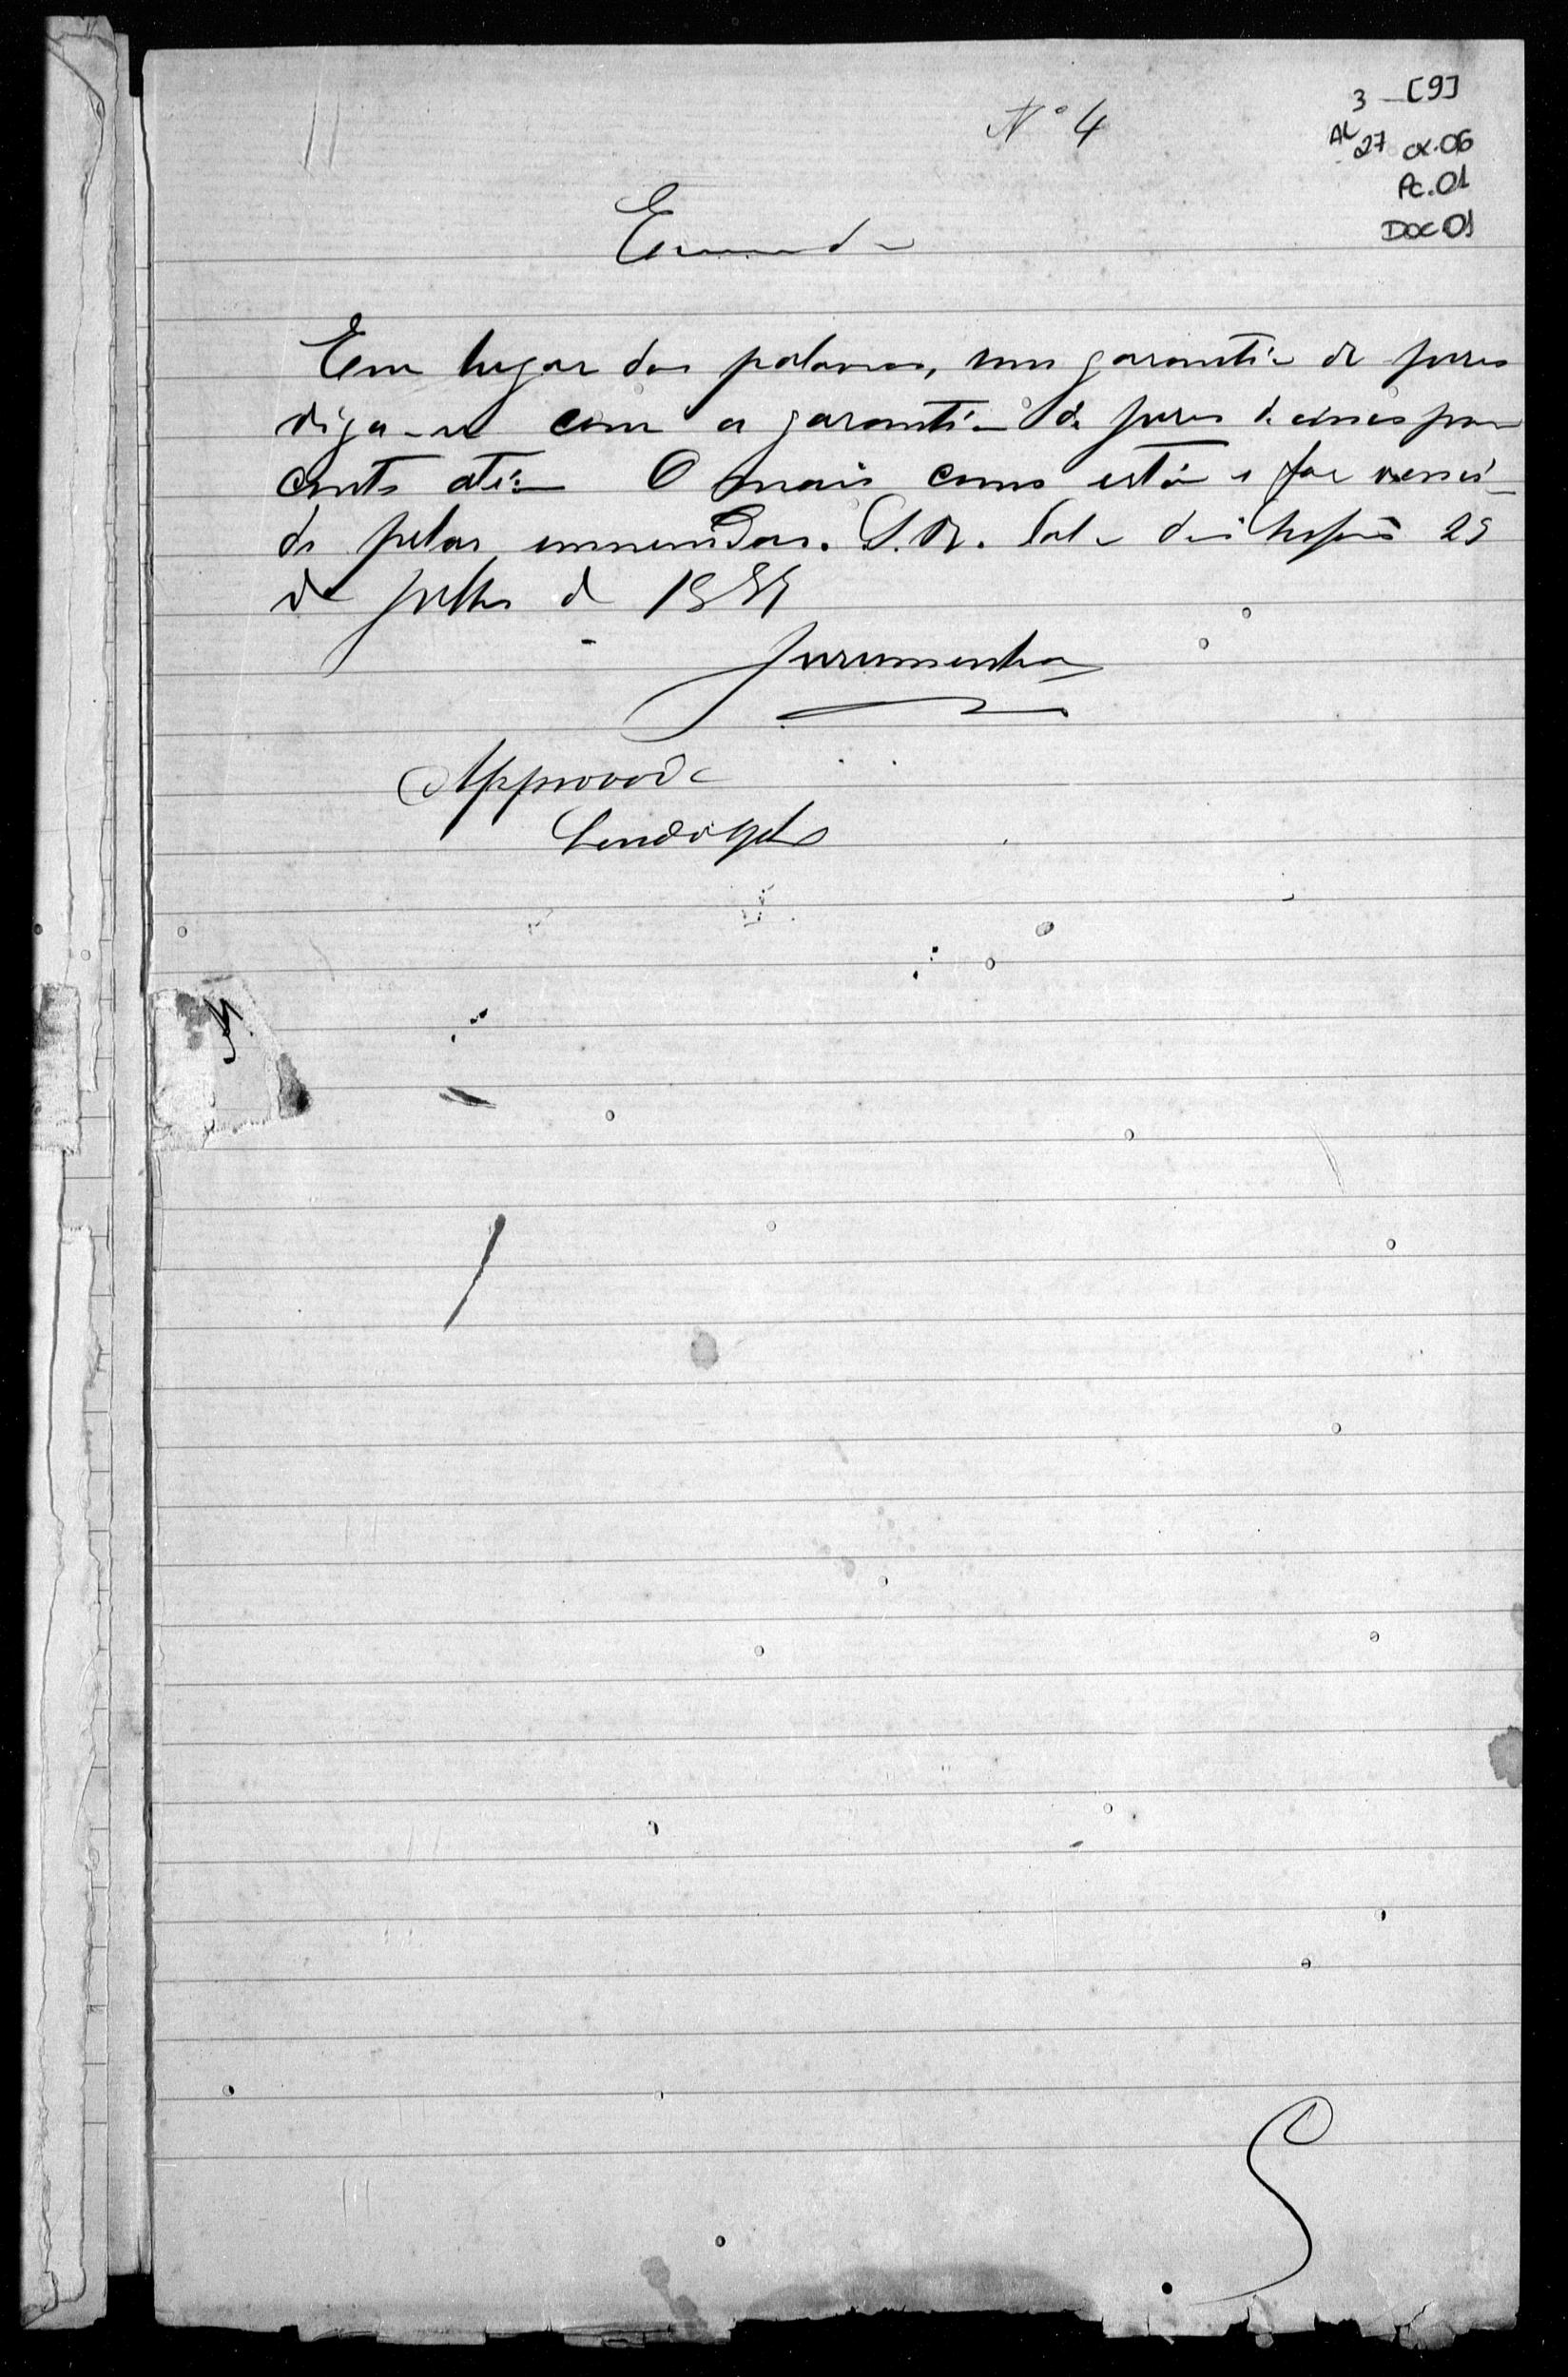 Nº 4
3 - [9]
AL 27 cx.06
Pc.01
DOC 01
Emenda
Em lugar das palavras, sem garantia de juros
diga-se com a garantia de juros de cinco por
cento etc. O mais como está e for venci-
do pelas emmendas. S.R. Sala das
de julho de
Jurumenha
Approvada
Lendolpho